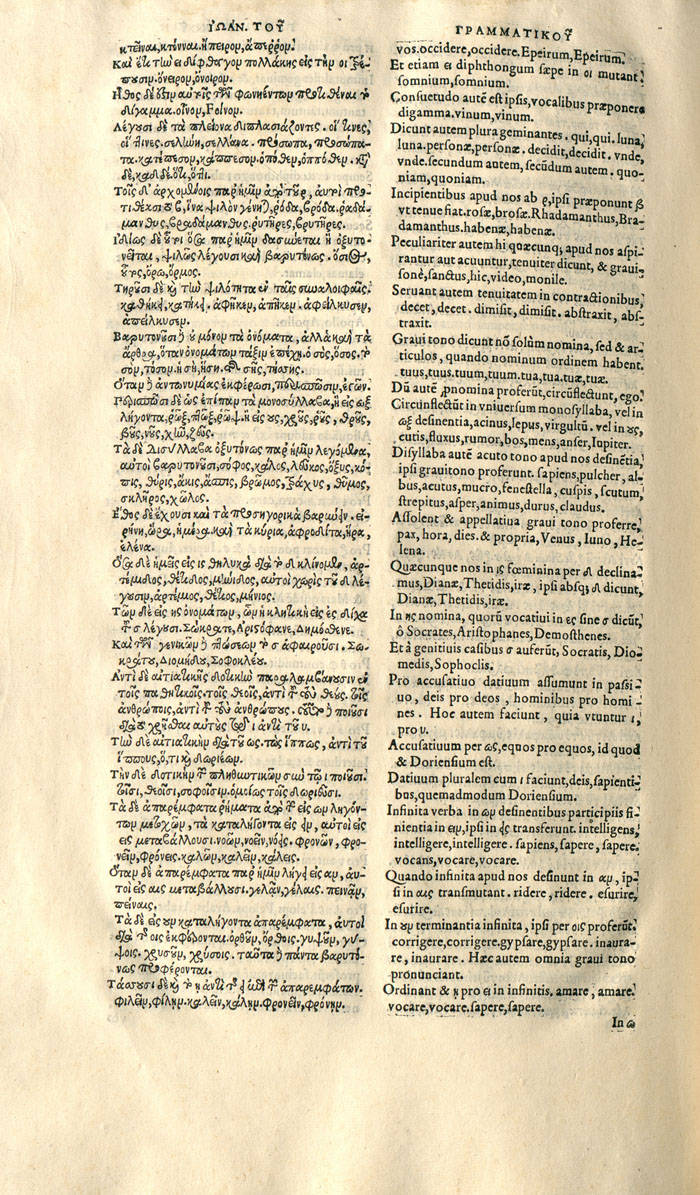 ΙΩΑΝ. ΤΟΥ͂
κτεῖναι, κτίνναι. ἤπειρον, ἄπερρον.
Καὶ ἔτι τὴν ει δίφθογγον πολλάκις εἰς τὴν οι τρέ-
πουσιν. ὄνειρον, ὄνοιρον.
Ηθος δέ ἐστιν αὐτοῖς τῶν φωνηέντων προτιθέναι τὸ
δίγαμμα. οἶνον, Γοῖνον.
Λέγουσι δὲ τὰ πλείονα διπλασιάζοντες. οἱ τινες,
οἵ τινες. σελήνη, σελλάνα. πρόσωπα, πρόσωπα-
τα. κατέπεσον, κάππεσον. ὁπόθεν, ὁππόθεν.
δὲ, καὶ δὲ. ὅτι, ὅτι.
Τοῖς δ' ἀρχομένοις παρ' ἡμῖν ἀπὸ τοῦ ρ, αὐτοὶ προσ-
τιθέασι τὸ β, ἵνα ψιλὸν γένηται, ῥόδα, βρόδα. ῥαδά-
μανθυς, βραδάμανθυς. ῥυτῆρες, βρυτῆρες.
Ιδίως δὲ ὅτι ὅσα παρ' ἡμῖν δασύνεται ἢ ὀξυτο-
νεῖται, ψιλῶς λέγουσι καὶ βαρυτόνως. ὅσιος,
οὗτος, ὁρῶ, ὅρμος.
Τηροῦσι δὲ καὶ τὴν ψιλότητα ἐν ταῖς συναλοιφαῖς.
καθήκει, κατήκει. ἀφῆκεν, ἀπῆκεν. ἀφείλκυσεν,
ἀπείλκυσεν.
Βαρυτονοῦσι δὲ οὐ μόνον τὰ ὀνόματα, ἀλλὰ καὶ τὰ
ἄρθρα, ὅταν ὀνομάτων τάξιν ἐπέχῃ. ὁ σὸς, ὅσος. τὸ
σὸν, τόσον. ἡ σὴ, ἥση. τῆς σῆς, τήσης.
Οταν δὲ ἀντωνυμίας ἐκφέρωσι, περισπῶσιν, ἐγῶν.
Περισπῶσι δὲ ὡς ἐπίπαν τὰ μονοσύλλαβα, ἢ εἰς ωξ
λήγοντα, ῥῶξ, πτῶξ, ῥῶψ. ἢ εἰς ους, χροῦς, ῥοῦς, θροῦς,
βοῦς, νοῦς, χὴν, ζεῦς.
Τὰ δὲ δισύλλαβα ὀξυτόνως παρ' ἡμῖν λεγόμενα,
αὐτοὶ βαρυτονοῦσι, σόφος, κάλος, λεῦκος, ὄξυς, κό-
πις, θύρις, ἄκις, ἄσπις, βρῶμος, τράχυς, θῦμος,
σκλῆρος, χῶλος.
Εθος δὲ ἔχουσι καὶ τὰ προσηγορικὰ βαρυτονεῖν. εἰ-
ρήνη, ὥρα, ἡμέρα. καὶ τὰ κύρια, ἀφροδίτα, ἥρα,
ἑλένα.
Οσα δὲ ἡμεῖς εἰς ις θηλυκὰ διὰ τοῦ δ κλίνομεν, ἀρ-
τέμιδος, θέτιδος, μήνιδος, αὐτοὶ χωρὶς τοῦ δ λέ-
γουσιν, ἀρτέμιος, θέτιος, μήνιος.
Τῶν δὲ εἰς ης ὀνομάτων, ὧν ἡ κλητικὴ εἰς ες δίχα
τοῦ σ λέγουσι. Σώκρατε, Αριστόφανε, Δημόσθενε.
Καὶ τῶν γενικῶν πτώσεων τὸ σ ἀφαιροῦσι. Σω-
κράτου, Διομήδου, Σοφοκλέου.
Αντὶ δὲ αἰτιατικῆς δοτικὴν παραλαμβάνουσιν ἐν
τοῖς παθητικοῖς. τοῖς θεοῖς, ἀντὶ τοῦ τοὺς θεούς. τοῖς
ἀνθρώποις, ἀντὶ τοῦ τοὺς ἀνθρώπους. τοῦτο δὲ ποιοῦσι
διὰ τὸ χρῆσθαι αὐτοὺς τῷ ι ἀντὶ τοῦ υ.
Τὴν δὲ αἰτιατικὴν διὰ τοῦ ως. τὼς ἵππως, ἀντὶ τοῦ
ἵππους, ὅ,τι καὶ δωριέων.
Τὴν δὲ δοτικὴν τῶν πληθυντικῶν σὺν τῷ ι ποιοῦσι.
τοῖσι, θεοῖσι, σοφοῖσιν. ὁμοίως τοῖς δωριεῦσι.
Τὰ δὲ ἀπαρέμφατα ῥήματα ἀπὸ τῶν εἰς ων ληγόν-
των μετοχῶν, τὰ καταλήγοντα εἰς ειν, αὐτοὶ εἰς
εις μεταβάλλουσι. νοῶν, νοεῖν, νόεις. φρονῶν, φρο-
νεῖν, φρόνεις. καλῶν, καλεῖν, κάλεις.
Οταν δὲ ἀπαρέμφατα παρ' ἡμῖν λήγῃ εἰς αν, αὐ-
τοὶ εἰς αις μεταβάλλουσι. γελᾶν, γέλαις. πεινᾶν,
πείναις.
Τὰ δὲ εἰς ουν καταλήγοντα ἀπαρέμφατα, αὐτοὶ
διὰ τοῦ οις ἐκφέρονται. ὀρθοῦν, ὄρθοις. γυψοῦν, γύ-
ψοις. χρυσοῦν, χρύσοις. ταῦτα δὲ πάντα βαρυτό-
νως προφέρονται.
Τάσσουσι δὲ καὶ τὸ η ἀντὶ τῆς ει ἐπὶ τῶν ἀπαρεμφάτων.
φιλεῖν, φίλην. καλεῖν, κάλην. φρονεῖν, φρόνην.
ΓΡΑΜΜΑΤΙΚΟΥ͂
vos. occidere, occidere. Epeirum, Epeirum.
Et etiam ει diphthongum sæpe in οι mutant
somnium, somnium.
Consuetudo autē est ipsis, vocalibus præponere
digamma. vinum, vinum.
Dicunt autem plura geminantes. qui, qui. luna,
luna. personæ, personæ. decidit, decidit. vnde,
vnde. secundum autem, secūdum autem. quo-
niam, quoniam.
Incipientibus apud nos ab ρ, ipsi præponunt β
vt tenue fiat. rosæ, brosæ. Rhadamanthus, Bra-
damanthus. habenæ, habenæ.
Peculiariter autem hi quæcunq; apud nos aspi-
rantur aut acuuntur, tenuiter dicunt, & graui-
sonè, sanctus, hic, video, monile.
Seruant autem tenuitatem in contractionibus,
decet, decet. dimisit, dimisit. abstraxit, abs-
traxit.
Graui tono dicunt nō solùm nomina, sed & ar-
ticulos, quando nominum ordinem habent.
tuus, tuus. tuum, tuum. tua, tua. tuæ, tuæ.
Dū autē ꝓnomina proferūt, circūflectunt, ego.
Circūnflectūt in vniuersum monosyllaba, vel in
ωξ desinentia, acinus, lepus, virgultū. vel in ους,
cutis, fluxus, rumor, bos, mens, anser, Iupiter.
Disyllaba autē acuto tono apud nos desinētia,
ipsi grauitono proferunt. sapiens, pulcher, al-
bus, acutus, mucro, fenestella, cuspis, scutum,
strepitus, asper, animus, durus, claudus.
Assolent & appellatiua graui tono proferre,
pax, hora, dies. & propria, Venus, Iuno, He-
lena.
Quæcunque nos in ις fœminina per δ declina-
mus, Dianæ, Thetidis, iræ, ipsi absq; δ dicunt,
Dianæ, Thetidis, iræ.
In ης nomina, quorū vocatiui in ες sine σ dicūt,
ô Socrates, Aristophanes, Demosthenes.
Et à genitiuis casibus σ auferūt, Socratis, Dio-
medis, Sophoclis.
Pro accusatiuo datiuum assumunt in passi-
uo, deis pro deos, hominibus pro homi-
nes. Hoc autem faciunt, quia vtuntur ι
pro υ.
Accusatiuum per ως, equos pro equos, id quod
& Doriensium est.
Datiuum pluralem cum ι faciunt, deis, sapienti-
bus, quemadmodum Doriensium.
Infinita verba in ων desinentibus participiis fi-
nientia in ειν, ipsi in εις transferunt. intelligens,
intelligere, intelligere. sapiens, sapere, sapere.
vocans, vocare, vocare.
Quando infinita apud nos desinunt in αν, ip-
si in αις transmutant. ridere, ridere. esurire,
esurire.
In ουν terminantia infinita, ipsi per οις proferūt.
corrigere, corrigere. gypsare, gypsare. inaura-
re, inaurare. Hæc autem omnia graui tono
pronunciant.
Ordinant & η pro ει in infinitis. amare, amare.
vocare, vocare. sapere, sapere.
In ω